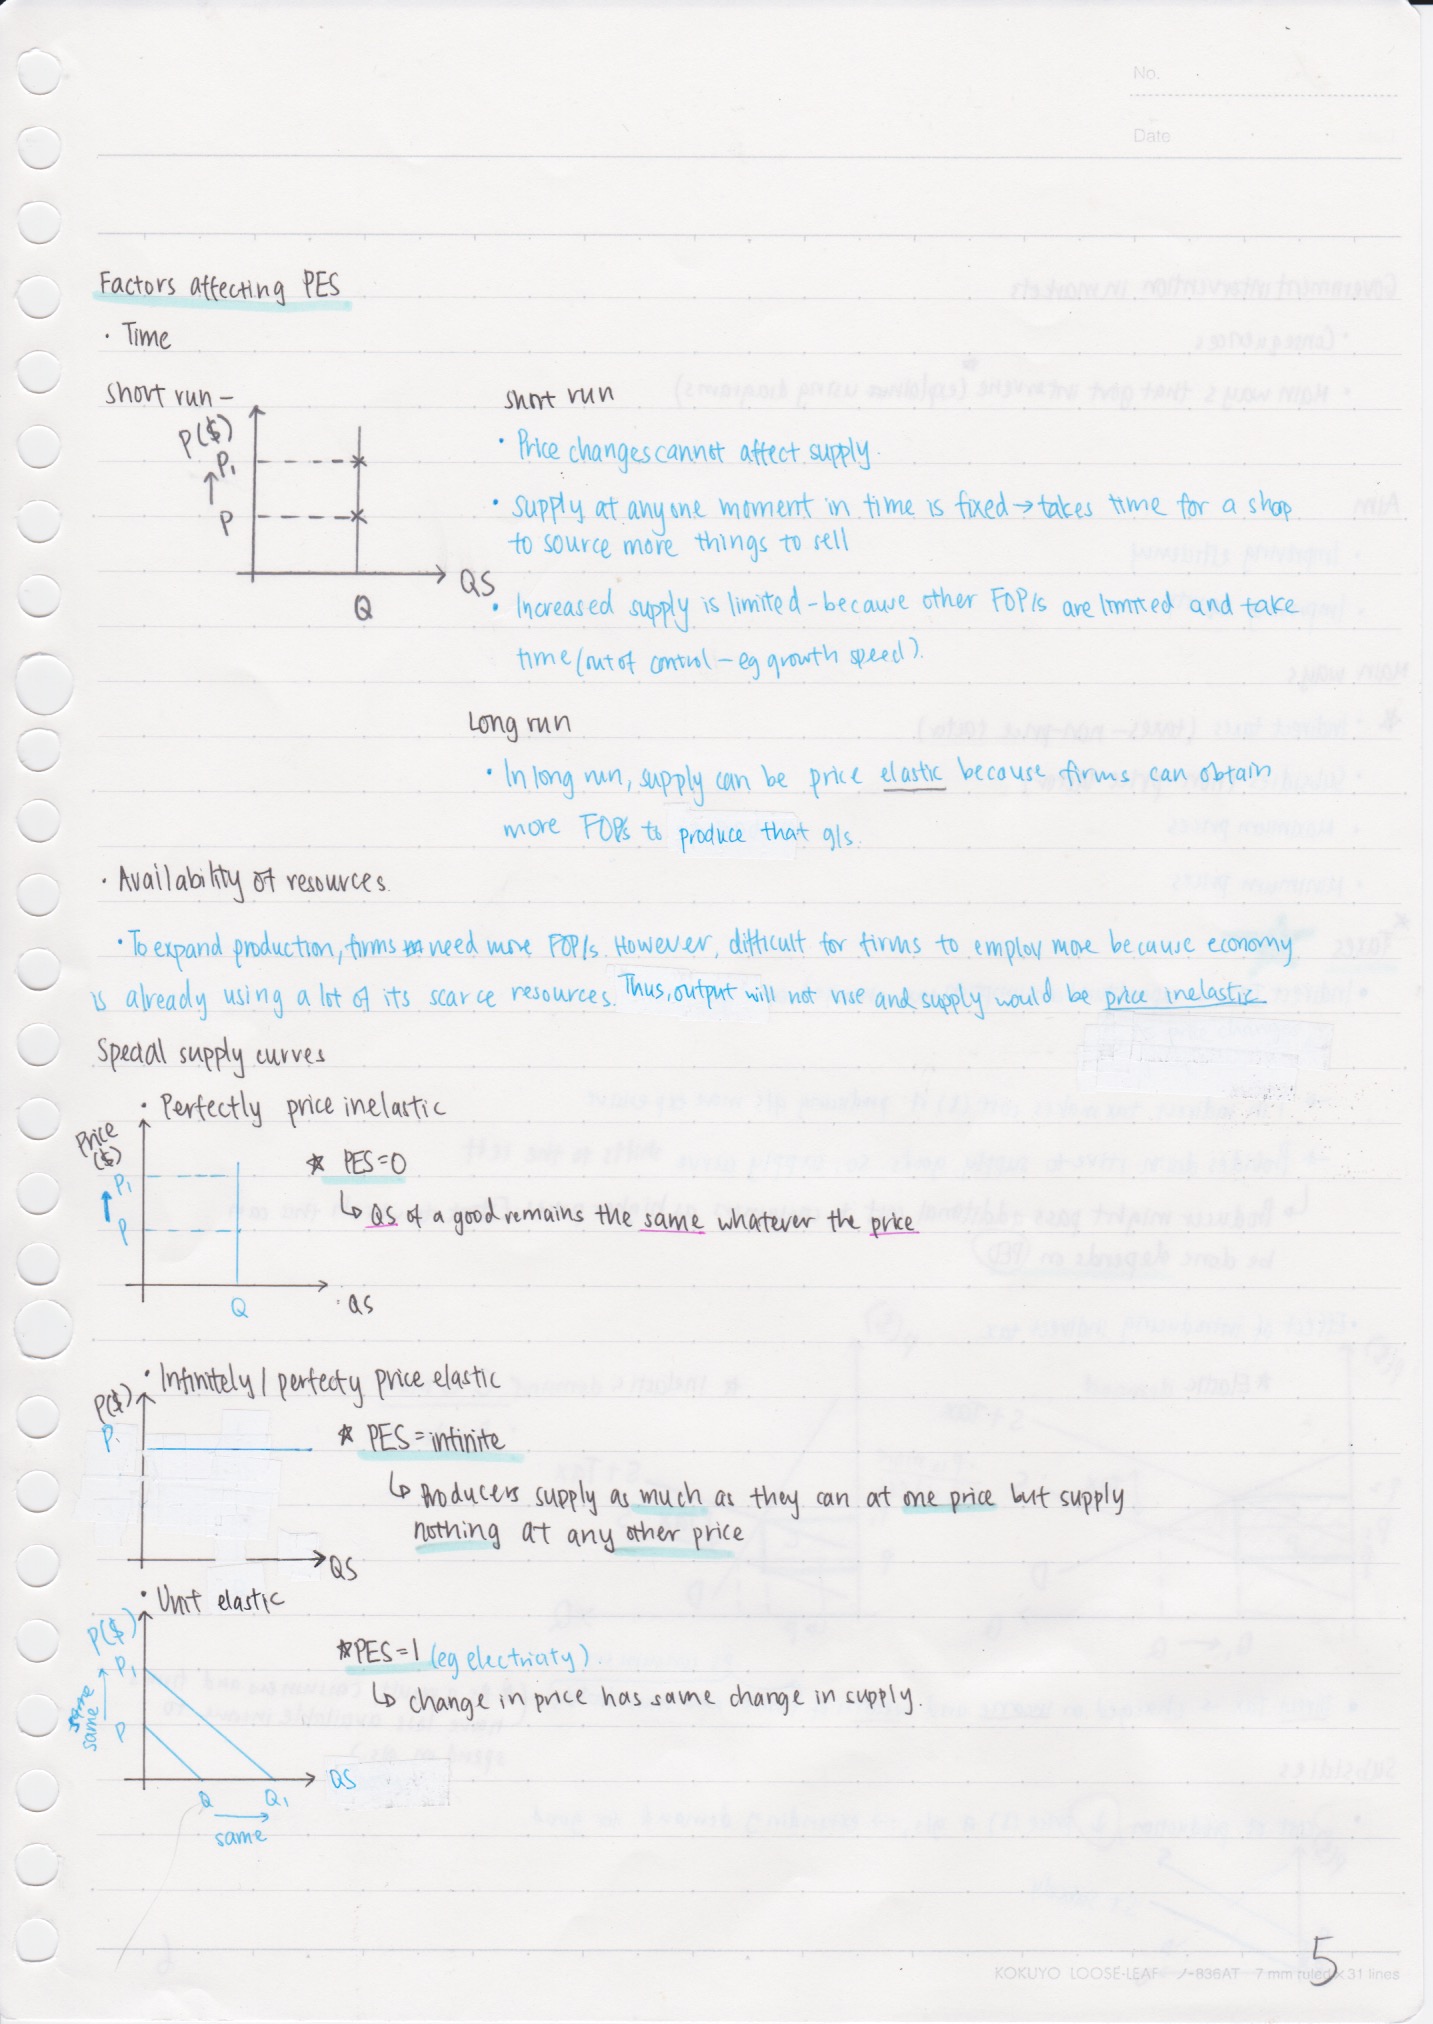 No.
Date
Factors affecting PES
· Time
short run –
P($)
P₁
P
Q
QS
short run
· Price changes cannot affect supply.
· Supply at any one moment in time is fixed → takes time for a shop
to source more things to sell
· Increased supply is limited – because other FOP/s are limited and take
time (out of control – eg growth speed).
Long run
· In long run, supply can be price elastic because firms can obtain
more FOP/s to produce that g/s.
· Availability of resources.
· To expand production, firms need more FOP/s. However, difficult for firms to employ more because economy
is already using a lot of its scarce resources. Thus, output will not rise and supply would be price inelastic
Special supply curves
· Perfectly price inelastic
Price
($)
P₁
P
Q
QS
☆ PES=0
↳ QS of a good remains the same whatever the price
· Infinitely / perfecty price elastic
P($)
P.
QS
☆ PES = infinite
↳ Producers supply as much as they can at one price but supply
nothing at any other price
· Unit elastic
P($)
P₁
P
same
same
Q
Q₁
QS
same
☆PES=1 (eg electricity).
↳ change in price has same change in supply.
5
KOKUYO LOOSE-LEAF ノ-836AT 7 mm ruled x 31 lines